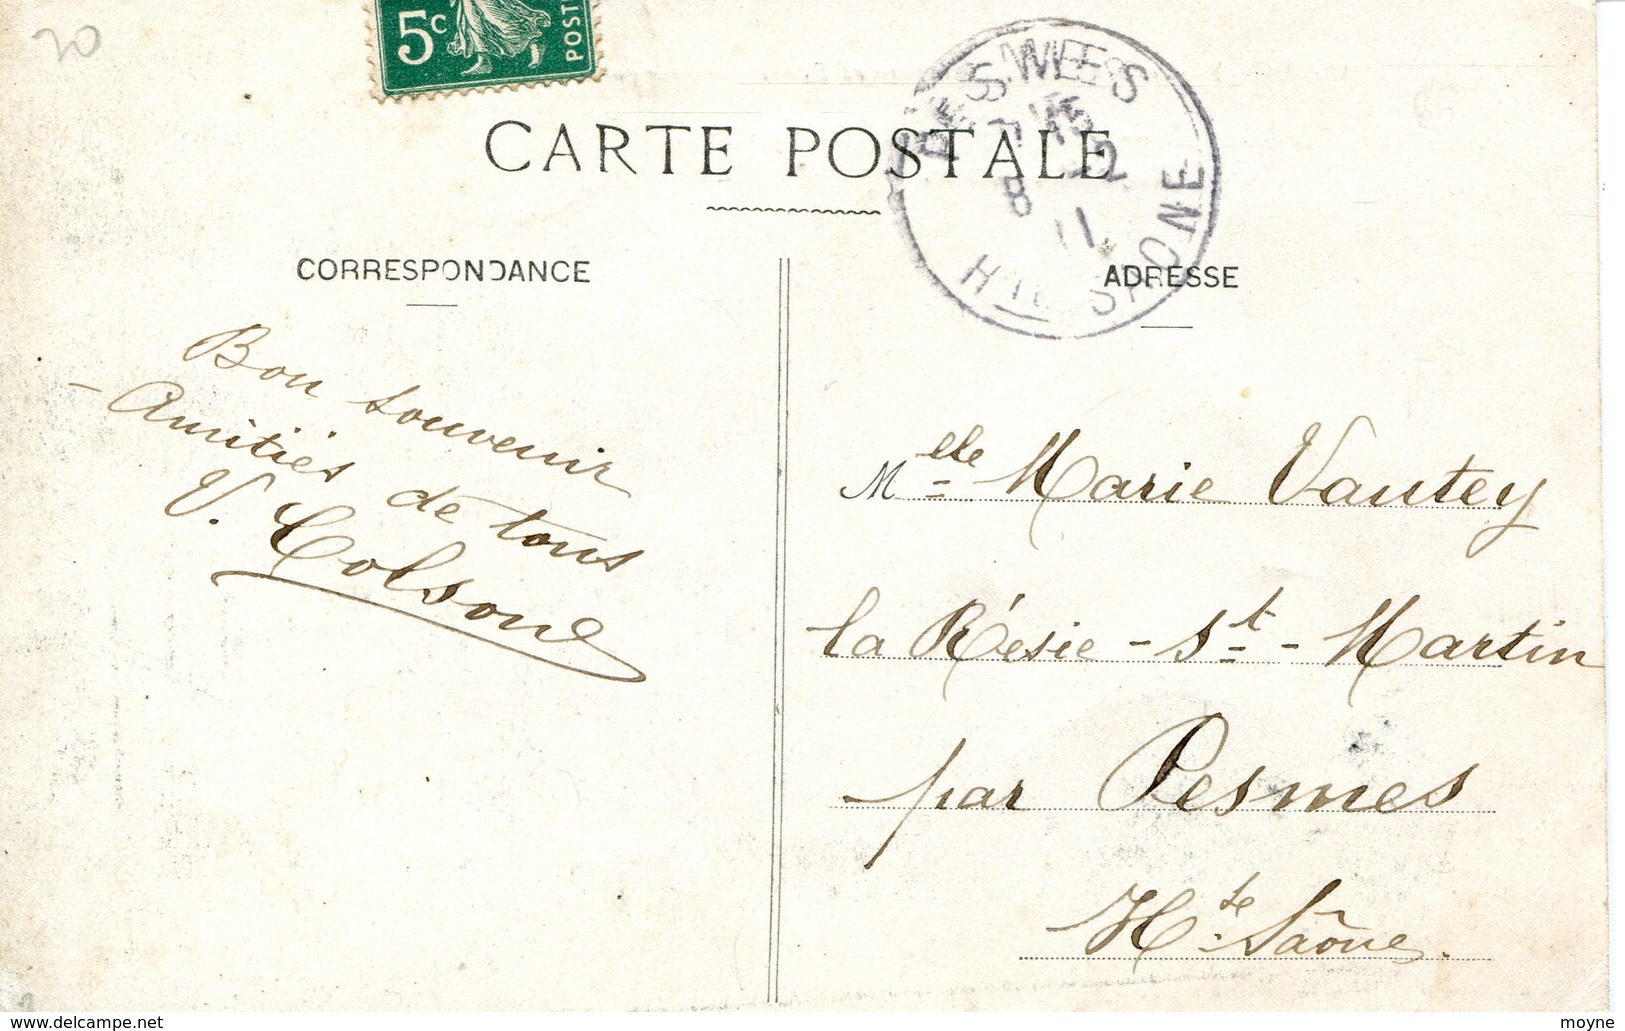 20
5c
POST
CARTE POSTALE
PESMES
15
8
12
11
HTE SAONE
CORRESPONDANCE
ADRESSE
Bon souvenir
- Amitiés de tous
V. Colsone
Mlle Marie Vautey
la Résie - St - Martin
par Pesmes
Hte Saône.
www.delcampe.net
moyne